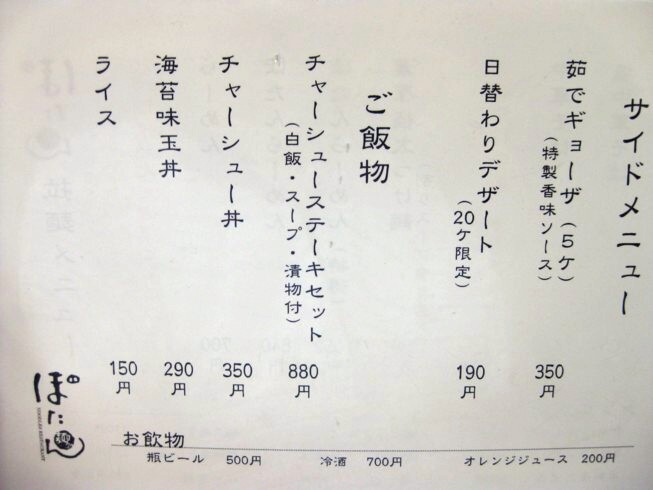 サイドメニュー
茹でギョーザ（５ケ）
（特製香味ソース）
350円
日替わりデザート
（20ケ限定）
190円
ご飯物
チャーシューステーキセット
（白飯・スープ・漬物付）
880円
チャーシュー丼
350円
海苔味玉丼
290円
ライス
150円
お飲物
瓶ビール 500円 冷酒 700円 オレンジジュース 200円